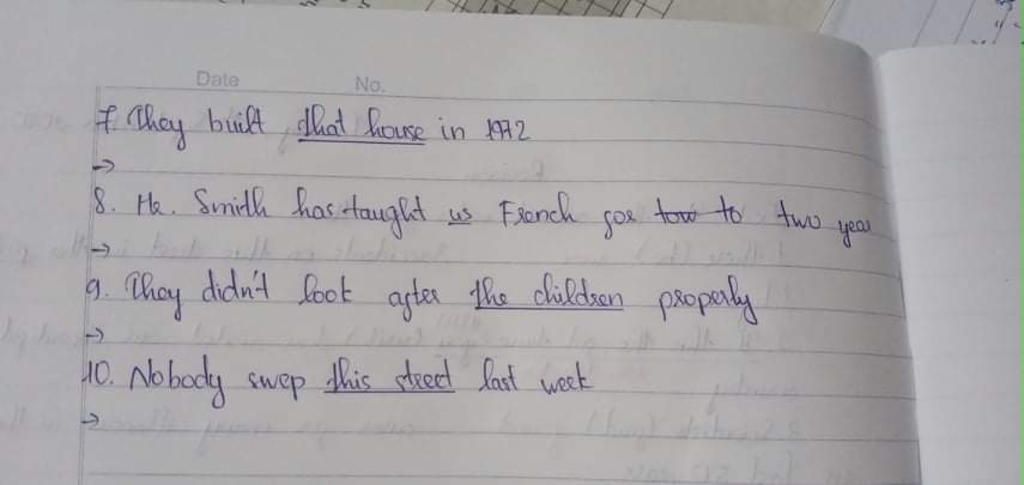 Date No.
7. They built that house in 1972
→
8. Mr. Smith has taught us French for tow to two year
→
9. They didn't look after the children properly
→
10. Nobody swep this street last week
→